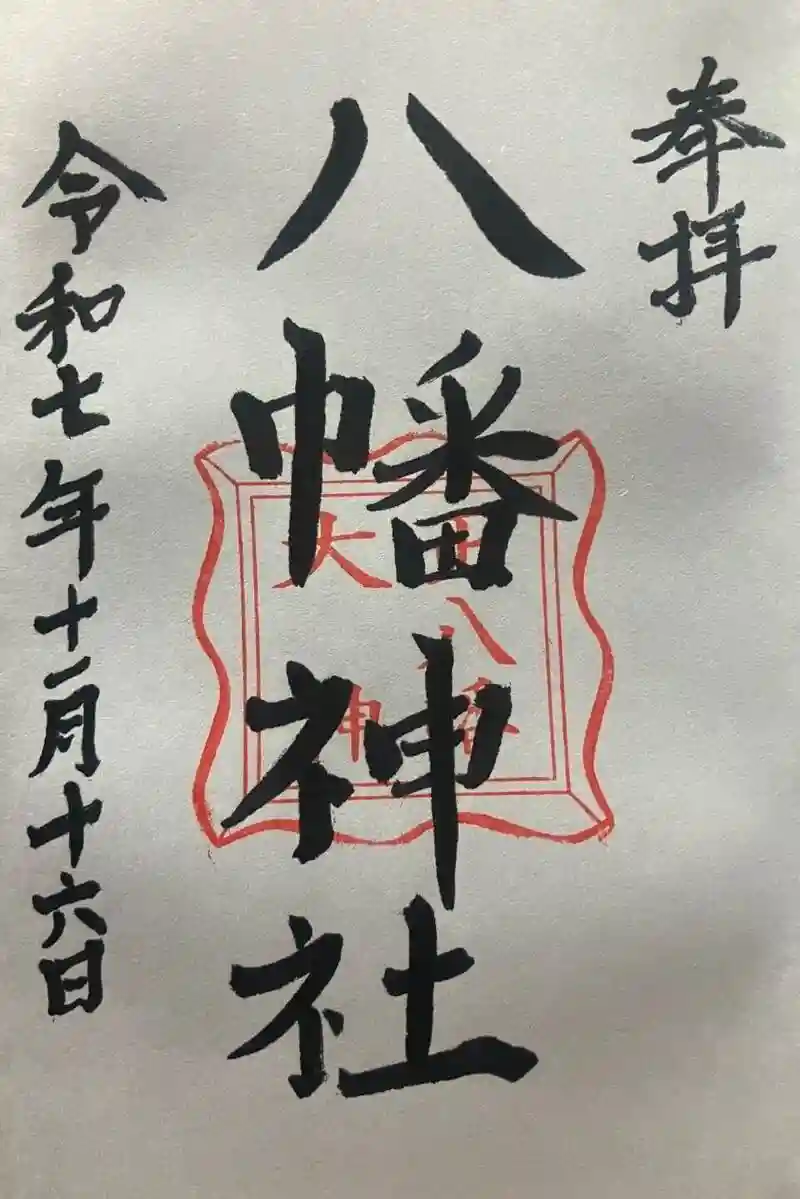 奉拝
八幡神社
令和七年十一月十六日
八幡
大神